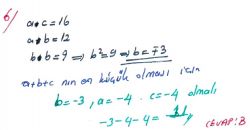 6)
a•c=16
a•b=12
b•b=9 ⟹ b²=9 ⟹ b=∓3
a+b+c nın en küçük olması için
b=-3, a=-4, c=-4 olmalı
-3-4-4=-11
CEVAP: B